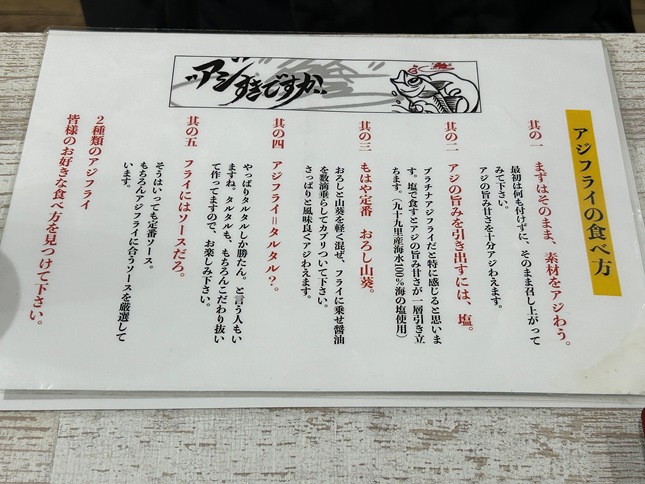 アジすきですか。
アジフライの食べ方
其の一 まずはそのまま、素材をアジわう。
最初は何も付けずに、そのまま召し上がって
みて下さい。
アジの旨み甘さを十分アジわえます。
其の二 アジの旨みを引き出すには、塩。
プラチナアジフライだと特に感じると思いま
す。塩で食すとアジの旨み甘さが一層引き立
ちます。（九十九里産海水100%海の塩使用）
其の三 もはや定番 おろし山葵。
おろしと山葵を軽く混ぜ、フライに乗せ醤油
を数滴垂らしてカブリついて下さい。
さっぱりと風味良くアジわえます。
其の四 アジフライ=タルタル？。
やっぱりタルタルしか勝たん。と言う人もい
ますね。タルタルも、もちろんこだわり抜い
て作ってますので、お楽しみ下さい。
其の五 フライにはソースだろ。
そうはいっても定番ソース。
もちろんアジフライに合うソースを厳選して
います。
2種類のアジフライ
皆様のお好きな食べ方を見つけて下さい。